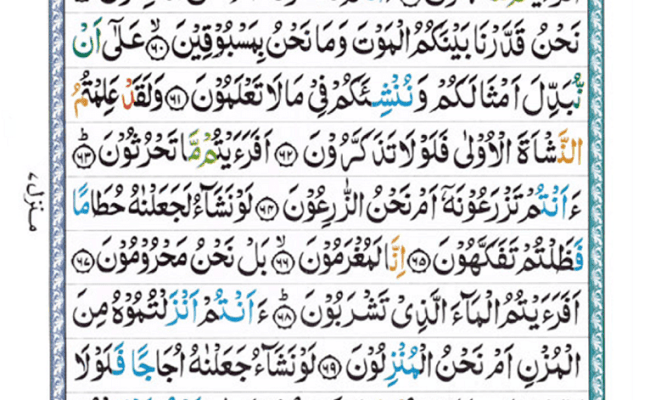 نَحْنُ قَدَّرْنَا بَيْنَكُمُ الْمَوْتَ وَمَا نَحْنُ بِمَسْبُوْقِيْنَ ۙ﴿۶۰﴾ عَلٰۤى اَنْ
نُّبَدِّلَ اَمْثَالَكُمْ وَنُنْشِئَكُمْ فِيْ مَا لَا تَعْلَمُوْنَ ﴿۶۱﴾ وَلَقَدْ عَلِمْتُمُ
النَّشْاَةَ الْاُوْلٰى فَلَوْ لَا تَذَكَّرُوْنَ ﴿۶۲﴾ اَفَرَءَيْتُمْ مَّا تَحْرُثُوْنَ ؕ﴿۶۳﴾
ءَاَنْتُمْ تَزْرَعُوْنَهٗۤ اَمْ نَحْنُ الزّٰرِعُوْنَ ﴿۶۴﴾ لَوْ نَشَآءُ لَجَعَلْنٰهُ حُطَامًا
فَظَلْتُمْ تَفَكَّهُوْنَ ﴿۶۵﴾ اِنَّا لَمُغْرَمُوْنَ ۙ﴿۶۶﴾ بَلْ نَحْنُ مَحْرُوْمُوْنَ ﴿۶۷﴾
اَفَرَءَيْتُمُ الْمَآءَ الَّذِيْ تَشْرَبُوْنَ ؕ﴿۶۸﴾ ءَاَنْتُمْ اَنْزَلْتُمُوْهُ مِنَ
الْمُزْنِ اَمْ نَحْنُ الْمُنْزِلُوْنَ ﴿۶۹﴾ لَوْ نَشَآءُ جَعَلْنٰهُ اُجَاجًا فَلَوْ لَا
منزل